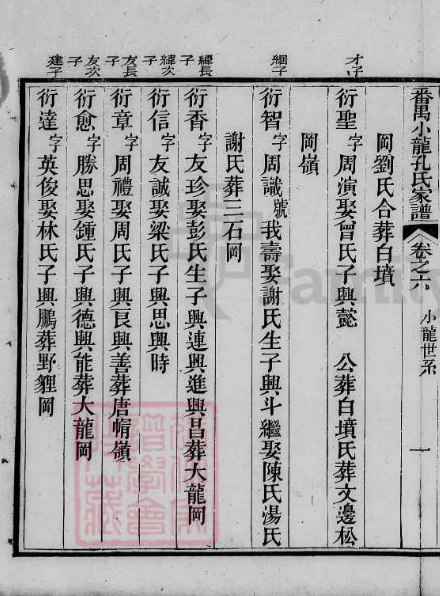 番禺小龍孔氏家譜
卷之六
小龍世系
一
岡劉氏合葬白墳
才子
衍聖字周演娶曾氏子興懿 公葬白墳氏葬文邊松
岡嶺
絪子
衍智字周識號我壽娶謝氏生子興斗繼娶陳氏湯氏
謝氏葬三石岡
緯長子
衍香字友珍娶彭氏生子興連興進興昌葬大龍岡
緯次子
衍信字友誠娶梁氏子興思興時
友長子
衍章字周禮娶周氏子興良興善葬唐帽嶺
友次子
衍愈字勝思娶鍾氏子興德興能葬大龍岡
建子
衍達字英俊娶林氏子興鵬葬野貍岡